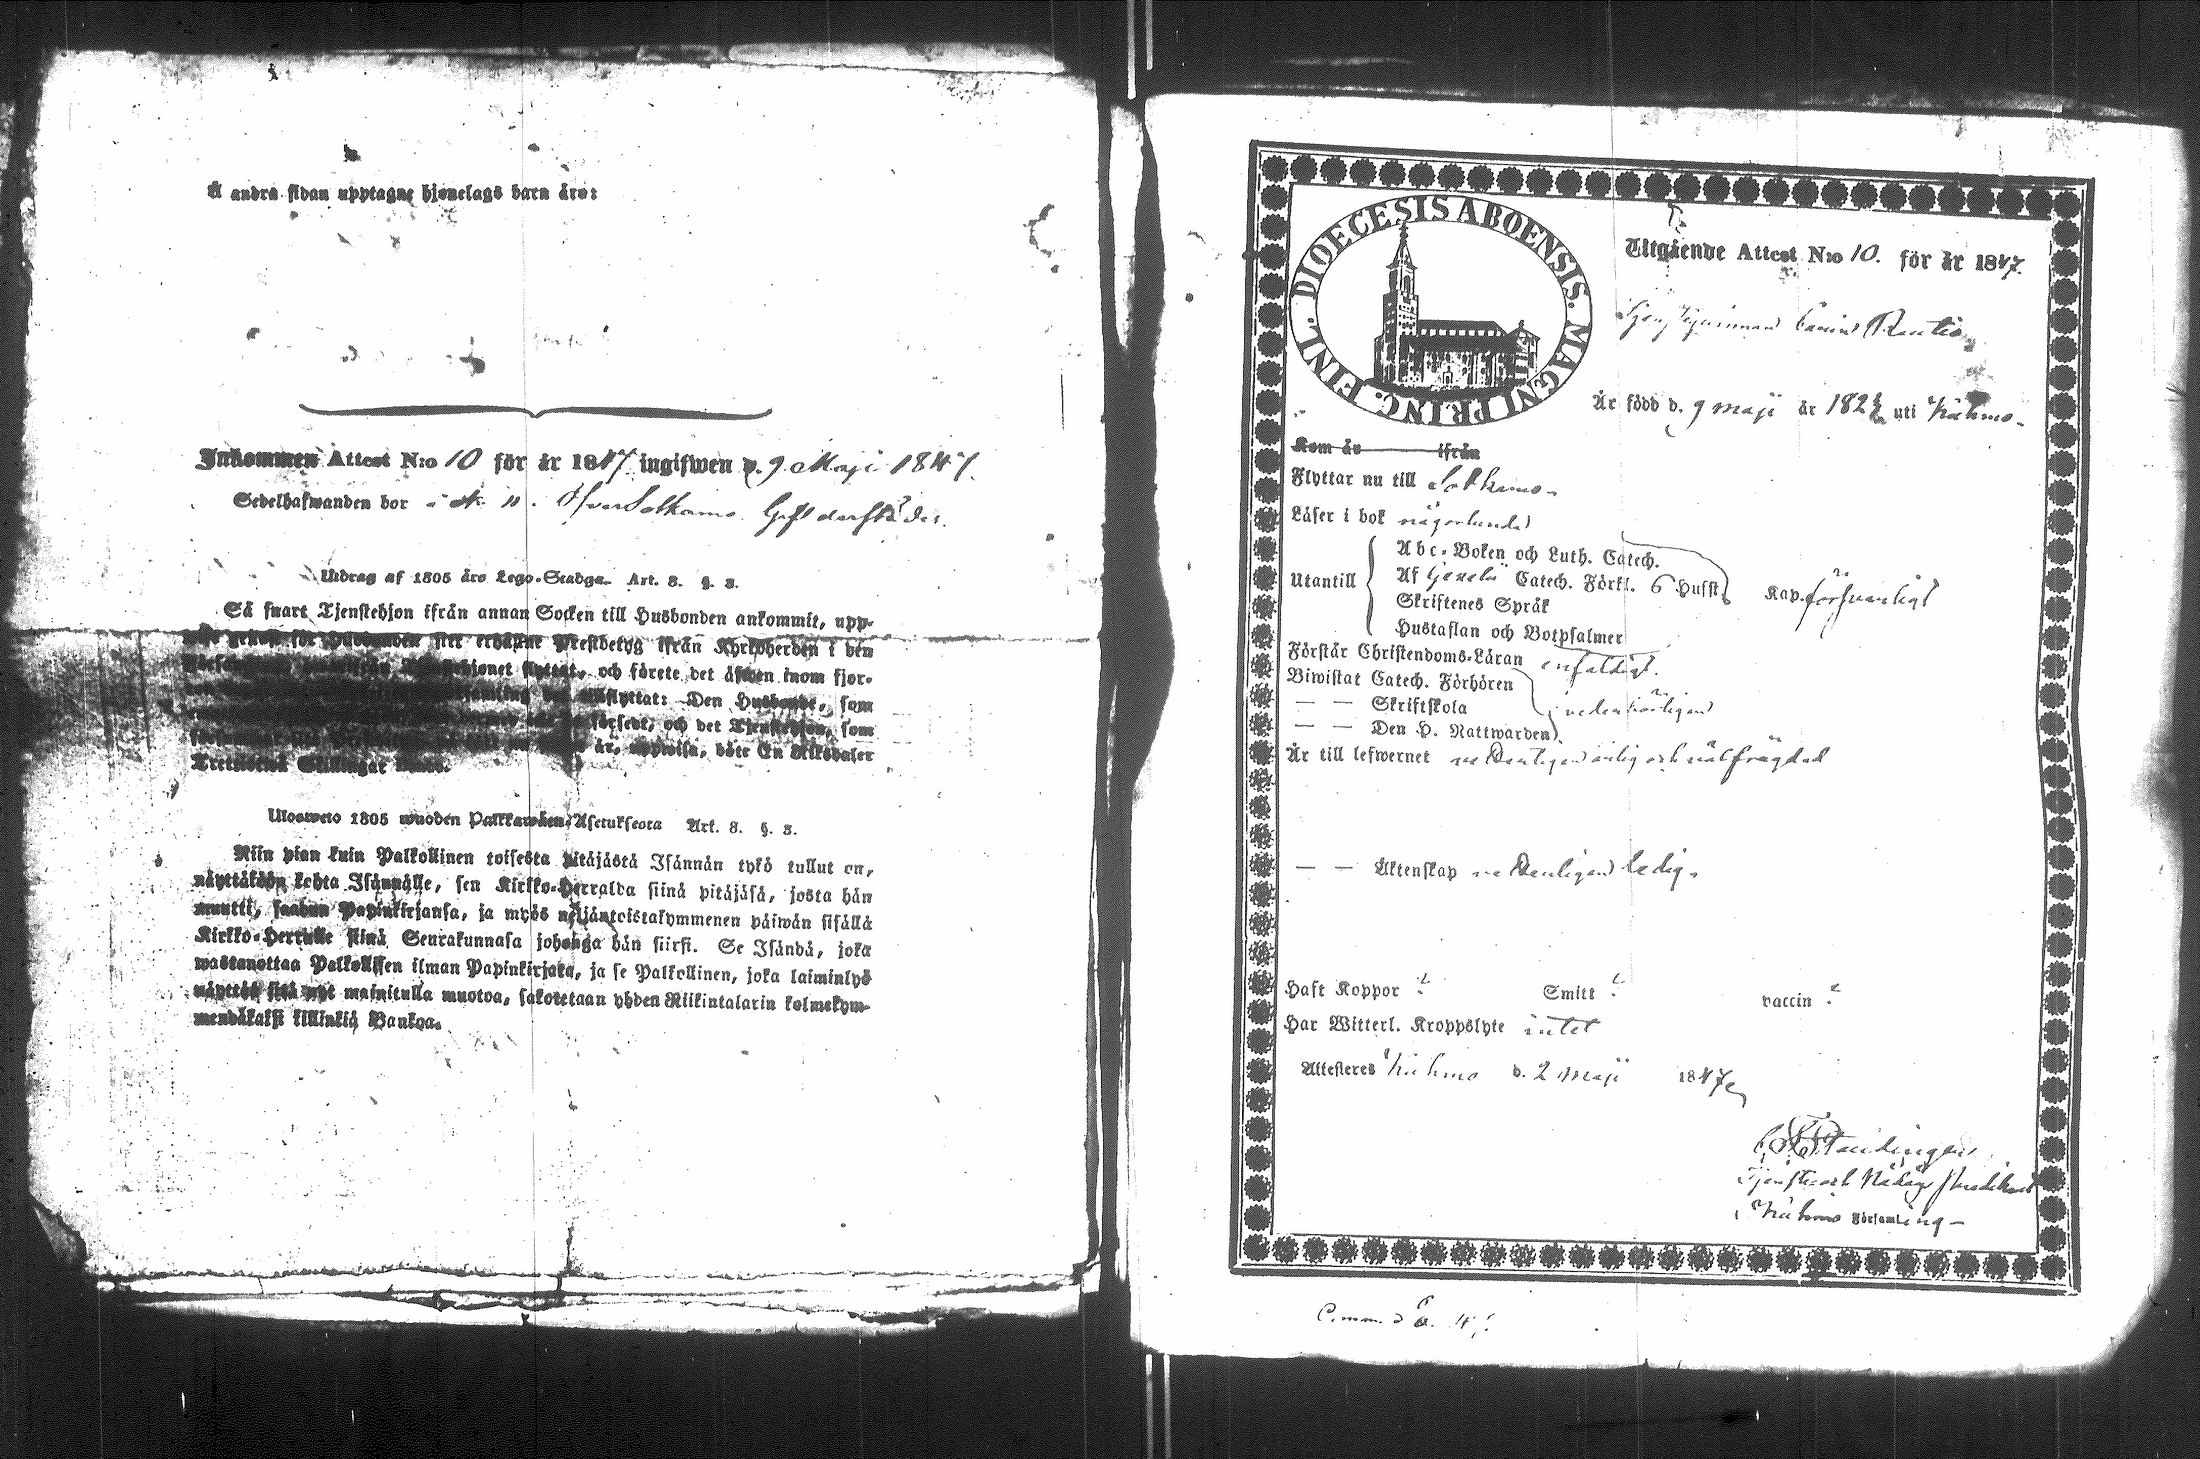 Å andra sidan upptagne hjonelags barn äro:
Inkommen Attest N:o 10 för år 1847 ingifwen d. 9 Maji 1847.
Sedelhafwanden bor i N:o 11. Öfver Sotkamo
Utdrag af 1805 års Lego-Stadga. Art. 8. §. 3.
Så snart Tjenstehjon ifrån annan Socken till Husbonden ankommit, upp-
för Husbonden sitt erhållne Prestbetyg ifrån Kyrkoherden i den
flyttat, och förete det äfwen inom fjor-
inflyttat: Den Husbonde, som
försedt, och det Tjenstehjon, som
är, uppwisa, böte En Riksdaler
Trettiotwå Skillingar Banco.
Uloswето 1805 wuoden Palkkawäen-Asetuksesta Art. 8. §. 3.
Niin pian kuin Palkollinen toisesta pitäjästä Isännän tykö tullut on,
näyttäköön kohta Isännälle, sen Kirkko-Herralda siinä pitäjäsä, josta hän
muutti, saadun Papinkirjansa, ja myös neljäntoistakymmenen päiwän sisällä
Kirkko-Herralle siinä Seurakunnasa johonga hän siirsi. Se Isändä, joka
wastanottaa Palkollisen ilman Papinkirjata, ja se Palkollinen, joka laiminlyö
näyttää sitä nyt mainitulla muotoa, sakotetaan yhden Riikintalarin kolmekym-
mendäkaksi killinkiä Bankoa.
DIOECESIS ABOENSIS. MAGNI PRINC. FINL.
Utgående Attest N:o 10. för år 1847.
Tjenstqvinnan Carin Rautio
Är född d. 9 maji år 182 uti Kuhmo.
Kom år ifrån
Flyttar nu till Sotkamo.
Läser i bok någorlunda
Utantill
Abc-Boken och Luth. Catech.
Af Gezelii Catech. Förkl. 6 Hufst. Kap. försvarligt
Skriftenes Språk
Hustaflan och Botpsalmer
Förstår Christendoms-Läran enfaldigt.
Biwistat Catech. Förhören
— — Skriftskola vederbörligen
— — Den H. Nattwarden
Är till lefwernet veterligen ärlig och välfrägdad
— — Äktenskap veterligen ledig.
Haft Koppor ? Smitt ? vaccin ?
Har Witterl. Kroppslyte intet
Attesteras Kuhmo d. 2 maji 1847
Kuhmo Församling